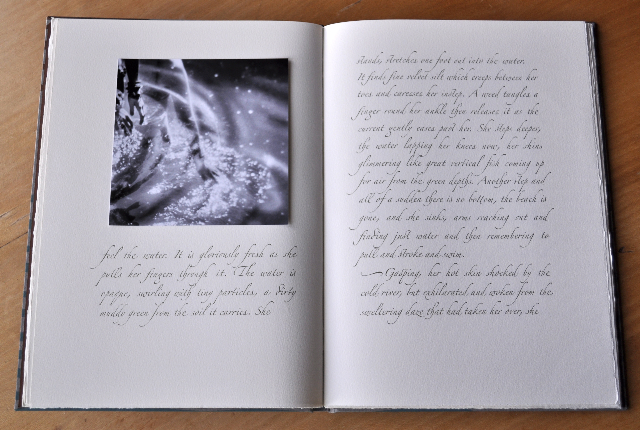 feel the water. It is gloriously fresh as she
pulls her fingers through it. The water is
opaque, swirling with tiny particles, a dirty
muddy green from the soil it carries. She
stands, stretches one foot out into the water.
It finds fine velvet silt which creeps between her
toes and caresses her instep. A weed tangles a
finger round her ankle then releases it as the
current gently eases past her. She steps deeper,
the water lapping her knees now, her shins
glimmering like great vertical fish coming up
for air from the green depths. Another step and
all of a sudden there is no bottom, the beach is
gone, and she sinks, arms reaching out and
finding just water and then remembering to
pull and stroke and swim.
—Gasping, her hot skin shocked by the
cold river, but exhilarated and woken from the
sweltering daze that had taken her over, she